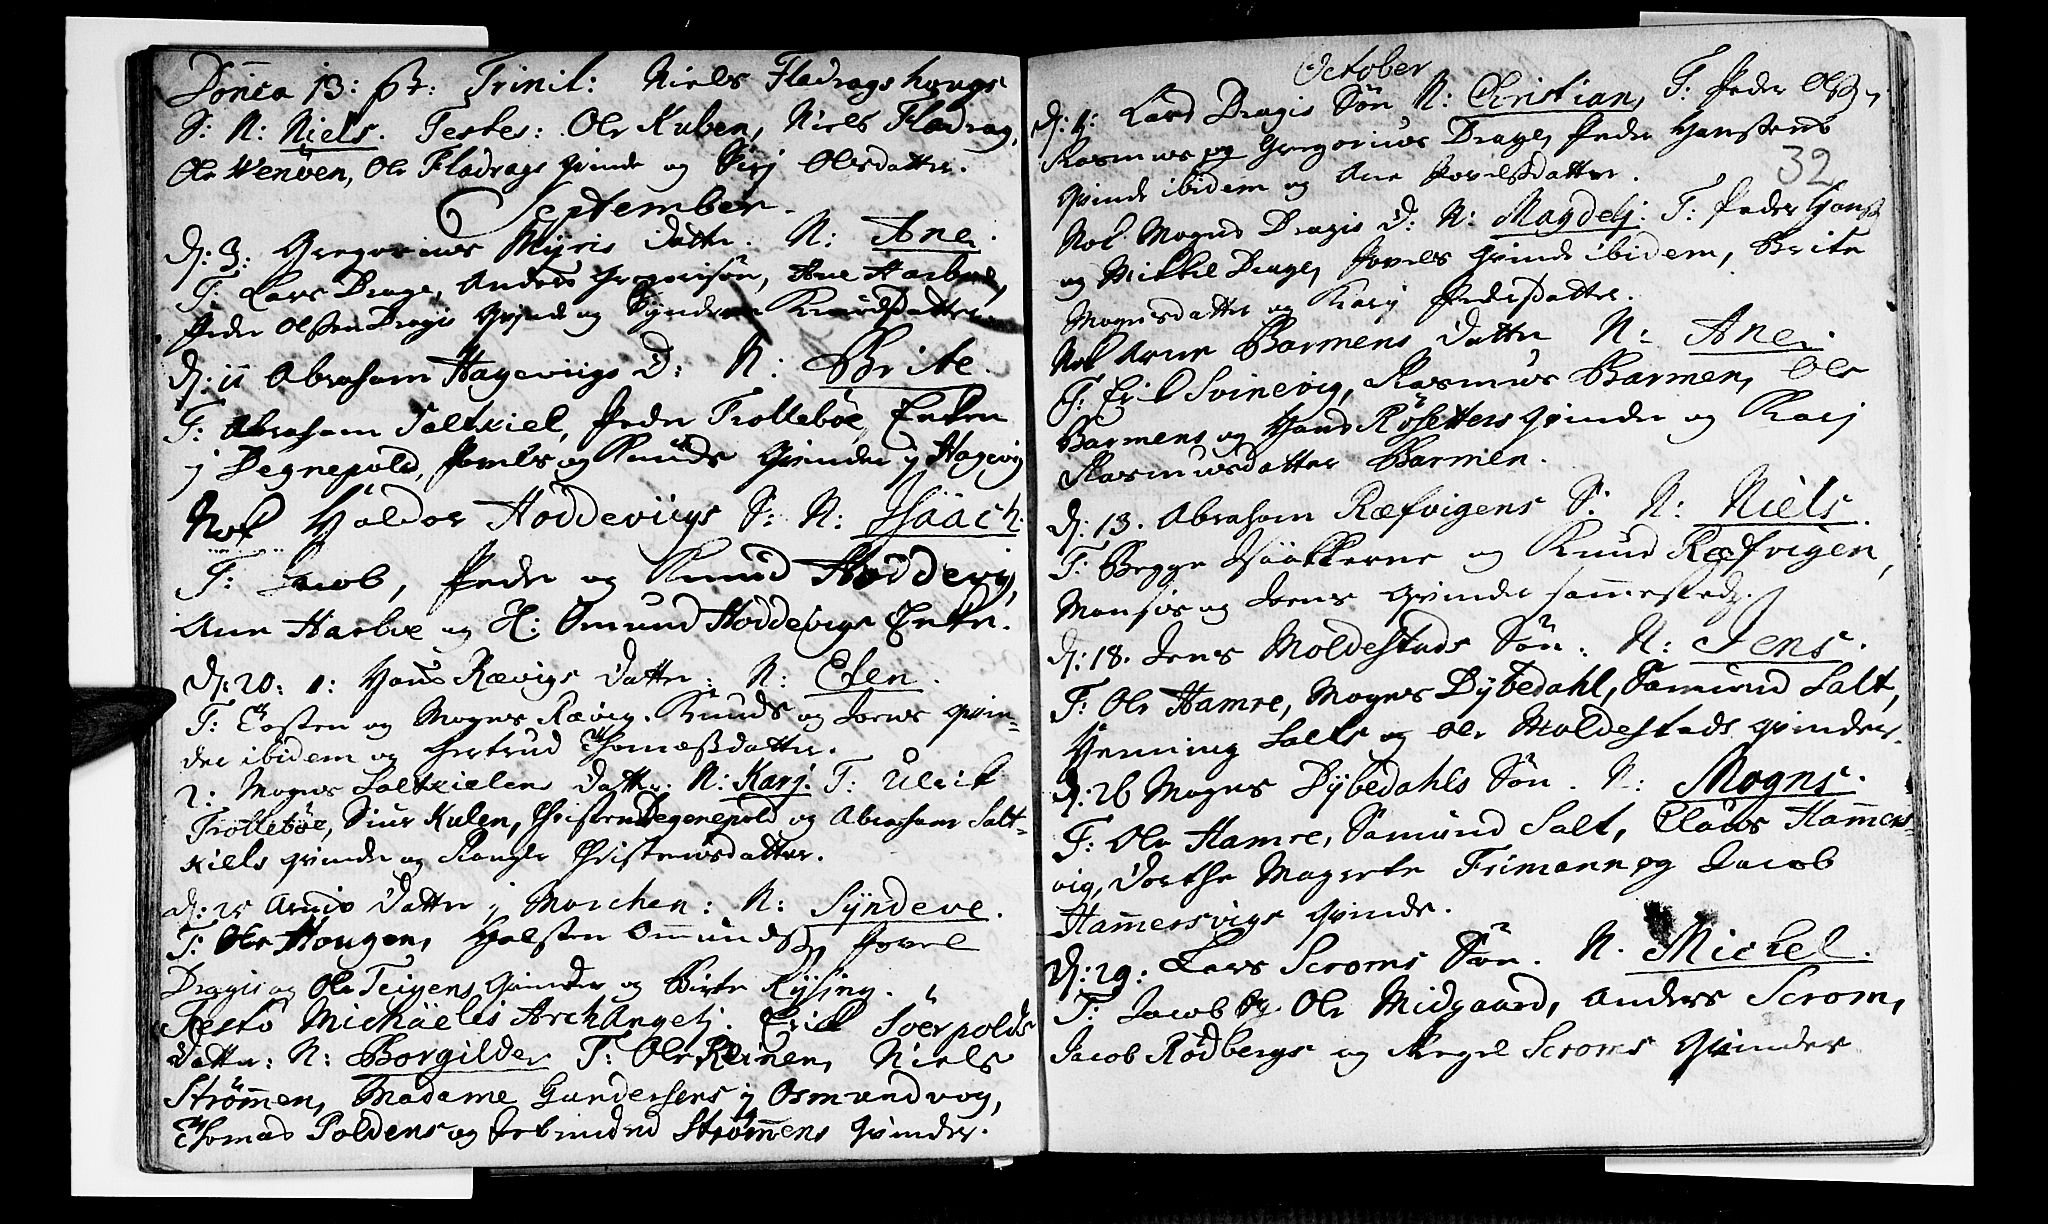 Dom̄ca 13: pt: Trinit: Niels Fladrags hougs
S: N: Niels. Testes: Ole Kuben, Niels Fladrag,
Ole Wenöen, Ole Fladrags Qvinde og Sirj Olesdatter.
September.
D: 3: Gregorius Myris Datter. N: Ane.
T: Lars Drage, Anders Gregorisön, Ane Harboe,
Peder Olssen Dragis Qvinde og Synderve Knudsdatter.
D: 11 Abraham Hagevigs D: N: Brite.
T: Abraham Saltkiel, Peder Trolleböe, Enken
j Degnepold, Povels og Knuds Qvinder j Hagevig
Nok Haldor Hoddevigs S: N: Isäach.
T: Jacob, Peder og Knud Hoddevig,
Ane Harboe og H: Omund Hoddevigs Enke.
D: 20: 1: Hans Rævigs Datter: N: Elen.
T: Tosten og Mogens Rævig. Knuds og Joens Qvin-
der ibidem og Giertrud Thomæsdatter.
2: Mogens Saltkielen Datter: N: Karj. T: Ulrik
Trolleböe, Siur Kulen, Christen Degnepold og Abraham Salt-
kiels Qvinder og Rangle Christensdatter.
D: 25 Datter j Morchen: N: Syndeve.
T: Ole Hougen, Halsten Omunds, Povel
Dragis og Ole Teigens Qvinder og Birte Rysing.
Festo Michäelis Archangelj. Erick Soerpolds
Datter: N: Borgilder T: Ole Reinen, Niels
Strömen, Madame Gundersens j Osmundvog,
Thomas Poldens og Strömmens Qvinder.
October
D: 4: Lars Dragis Sön N: Christian, T: Peder Ols:,
Rasmus og Gregorius Drage, Peder Hansens
32
Qvinde ibidem og Ane Povelsdatter.
Nok Mogns Dragis D: N: Magdelj: T: Peder Hans:
og Mikkel Drage, Povels Qvinde ibidem, Brite
Mognsdatter og Karj Pedersdatter.
Nok Arne Barmens Datter N: Ane.
T: Erik Svinevig, Rasmus Barmen, Ole
Barmens og Hans Rösetters Qvinder og Karj
Rasmusdatter Barmen.
D: 13. Abraham Ræfvigens S: N: Niels.
T: Begge Isäakkerne og Knud Ræfvigen,
Monsis og Joens Qvinder sam̄ested.
D: 18. Jens Moldestads Sön. N: Jens.
T: Ole Hamre, Mogns Dybedahl, Samund Salt,
Henning Salts og Ole Moldestads Qvinder.
D: 26 Mogns Dybedahls Sön. N: Mogns.
T: Ole Hamre, Samund Salt, Claus Ham̄ers-
vig, Dorthe Magrete Frimann og Jacob
Ham̄ersvigs Qvinde.
D: 29: Lars Scroms Sön. N. Mickel.
T: Jacob og Ole Midgaard, Anders Scrom,
Jacob Rödbergs og Scroms Qvinder